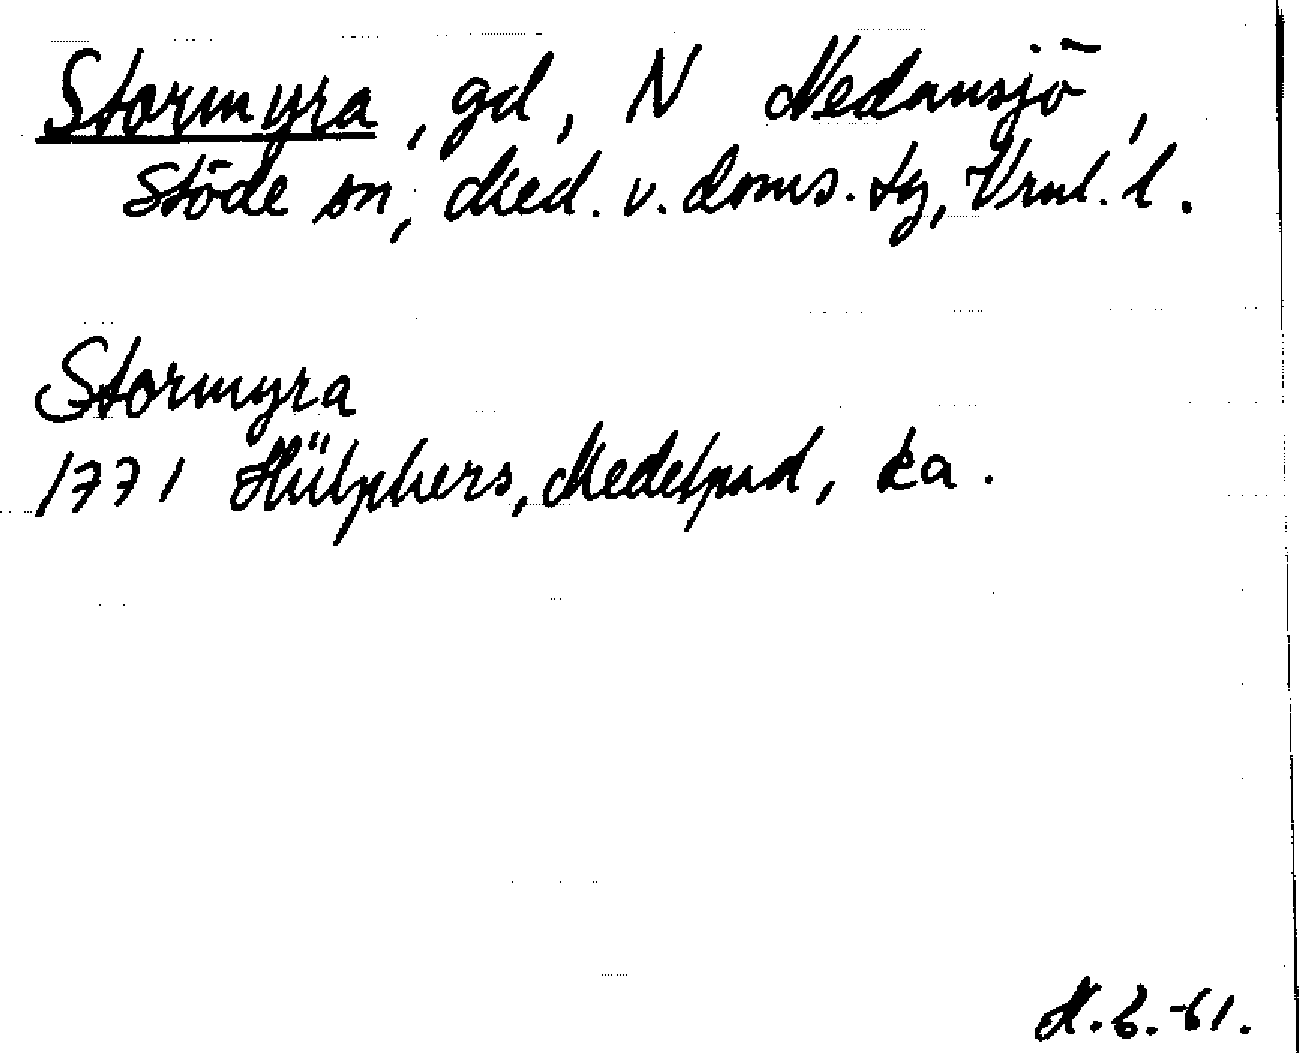 Stormyra, gd, N Nedansjö,
Stöde sn, Med. v. doms. tg, Vrnl. l.
Stormyra
1771 Hülphers, Medelpad, ka.
H.B.-61.